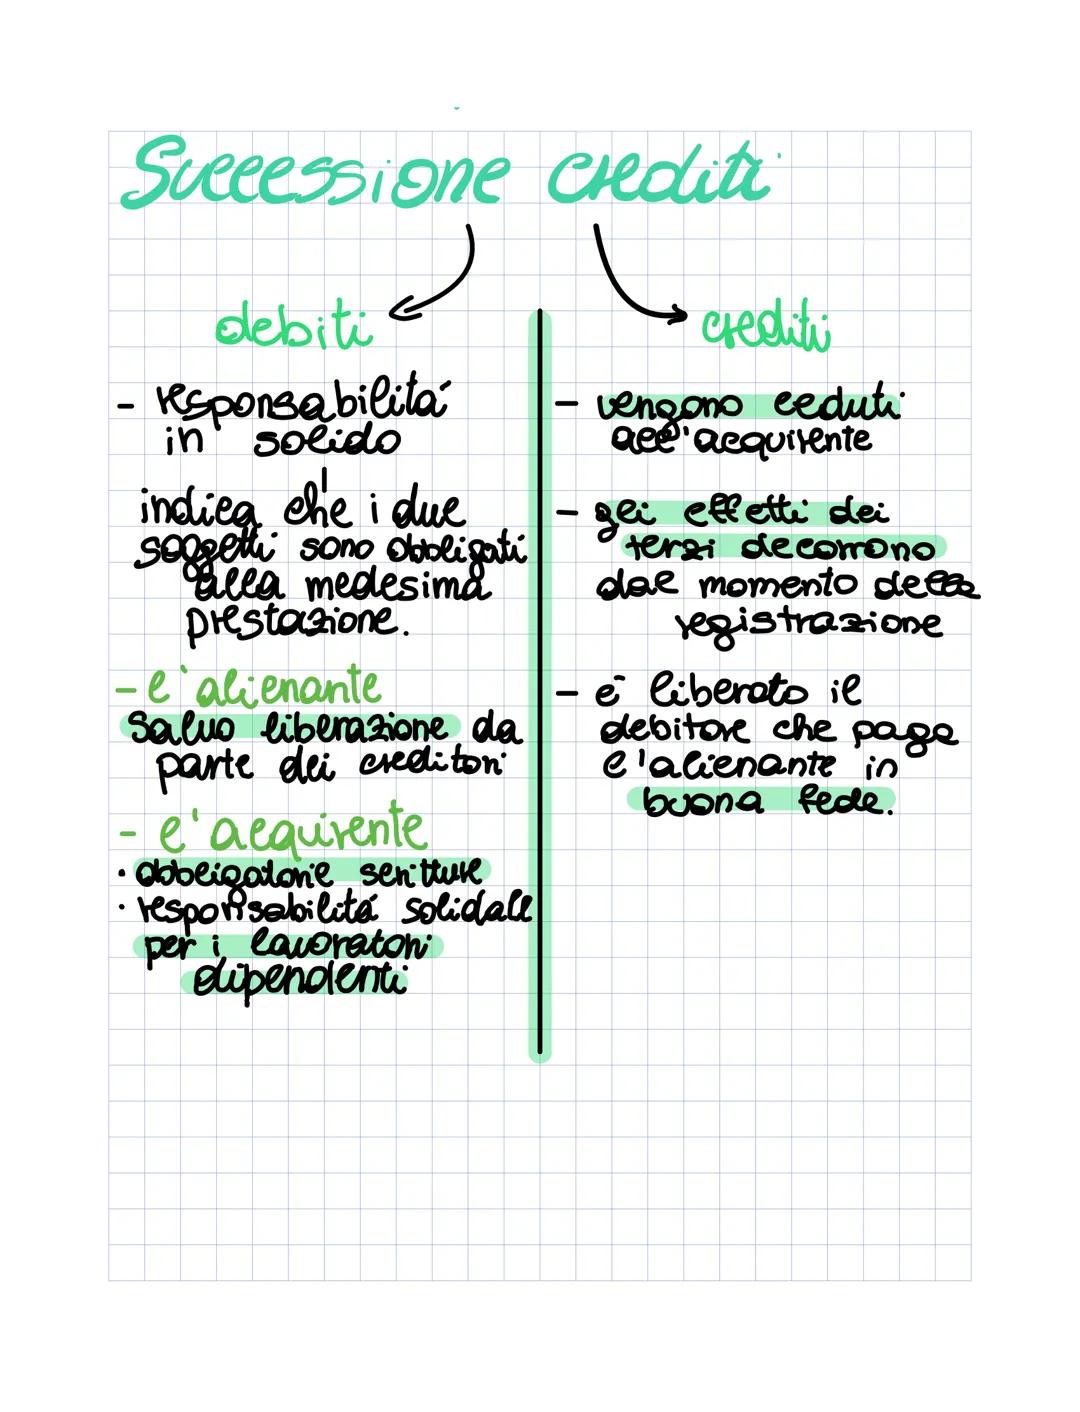 Successione crediti
debiti
- responsabilitá
in solido
indica che i due
soggetti sono obbligati
alla medesima
prestazione.
- l'alienante
Salvo liberazione da
parte dei creditori
- l'acquirente
· obbligatorie scritture
· responsabilitá solidale
per i lavoratori
dipendenti
crediti
- vengono ceduti
all'acquirente
- gli effetti dei
terzi decorrono
dal momento della
registrazione
- é liberato il
debitore che paga
l'alienante in
buona fede.